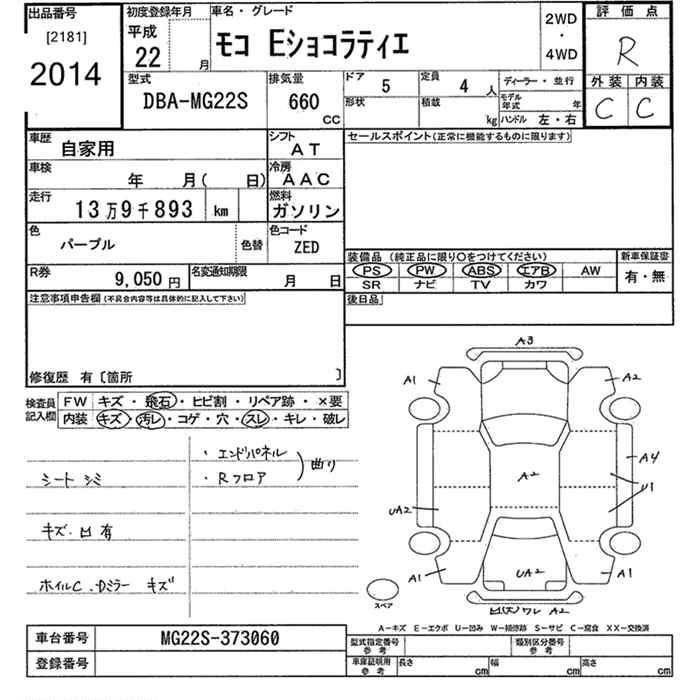 出品番号
[2181]
2014
初度登録年月
平成
22 月
車名・グレード
モコ Eショコラティエ
2WD
・
4WD
評価点
R
外装 内装
C C
型式
DBA-MG22S
排気量
660
CC
ドア 5
定員 4 人
形状
積載 kg
ディーラー・並行
モデル年式 年
ハンドル 左・右
車歴
自家用
シフト
AT
車検
年 月( 日)
冷房
AAC
走行
13万9千893 km
燃料
ガソリン
色
パープル
色替
色コード
ZED
R券
9,050円
名変通知期限
月 日
セールスポイント(正常に機能するものに限ります)
装備品 (純正品に限り○をつけてください)
新車保証書
PS PW ABS エアB AW
SR ナビ TV カワ
有・無
後日品
注意事項申告欄(不具合内容等は具体的に記入して下さい)
修復歴 有〔箇所 〕
検査員記入欄
FW キズ・飛石・ヒビ割・リペア跡・×要
内装 キズ・汚レ・コゲ・穴・スレ・キレ・破レ
シート シミ
キズ・凹 有
ホイルC・Dミラー キズ
・エンドパネル
・Rフロア
曲り
A3
A1
A2
A2
A4
U1
UA2
UA2
A1
A1
スペア
ワレ A2
A-キズ E-エクボ U-凹み W-補修跡 S-サビ C-腐食 XX-交換済
車台番号
MG22S-373060
登録番号
型式指定番号
参考
類別区分番号
参考
車庫証明用
参考
長さ cm
幅 cm
高さ cm